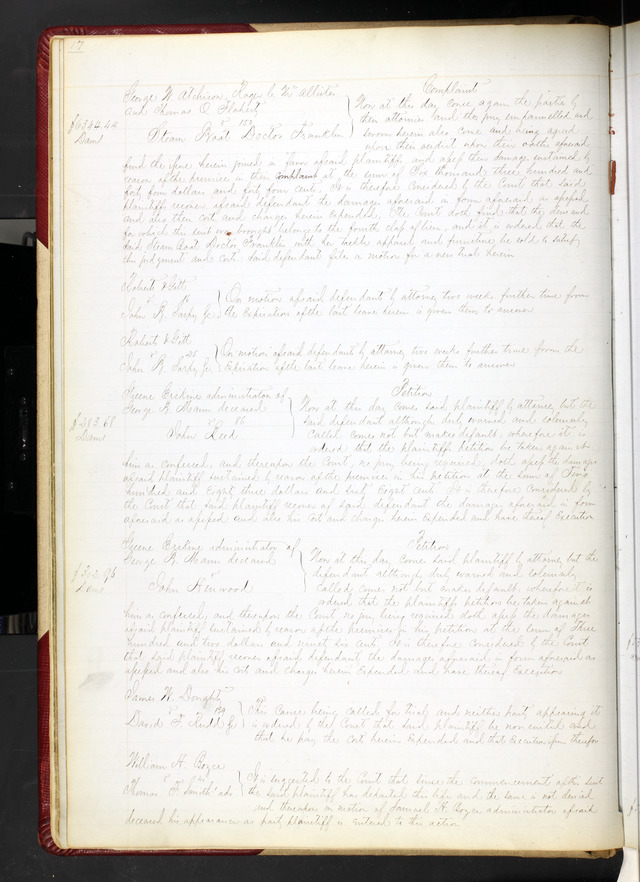 17
George W Atchison, Roger C McAllister
and Thomas O Flaherty
Complaint
$6344.44
Dam
v 153
Steam Boat Doctor Franklin
Now at this day come again the parties by
their attornies and the jury empannelled and
sworn herein also come and being agreed
upon their verdict upon their oaths aforesaid
find the issue herein joined in favor of said plaintiffs and assess their damage sustained by
reason of the premises in their complaint at the sum of Six thousand three hundred and
forty four dollars and forty four cents. It is therefore considered by the Court that said
plaintiffs recover of said defendant the damages aforesaid in form aforesaid as assessed
and also their costs and charges herein expended. The Court doth find that the demand
for which this suit was brought belongs to the fourth class of liens, and it is ordered that the
said Steam Boat Doctor Franklin with her tackle apparel and furniture be sold to satisfy
this judgment and costs. Said defendants file a motion for a new trial herein
Robert &
v 16
John B. Sarpy, Gr
On motion of said defendant by attorney two weeks further time from
the expiration of the last leave herein is given them to answer
Robert &
v 25
John B. Sarpy, Gr
On motion of said defendant by attorney two weeks further time from the
expiration of the last leave herein is given them to answer
Greene Erskine administrator of
George R. Mann deceased
Petition
$283.68
Dam
v 86
John Reed
Now at this day comes said plaintiff by attorney, but the
said defendant although duly warned and solemnly
called comes not but makes default, wherefore it is
ordered that the plaintiffs petition be taken against
him as confessed, and thereupon the Court, no jury being required doth assess the damages
of said plaintiff sustained by reason of the premises in his petition at the sum of Two
hundred and Eighty three dollars and sixty Eight cents. It is therefore considered by
the Court that said plaintiff recover of said defendant the damages aforesaid in form
aforesaid as assessed and also his costs and charges herein expended and have thereof Execution
Greene Erskine administrator of
George R. Mann deceased
Petition
$302.96
Dam
v
John
Now at this day comes said plaintiff by attorney but the
defendant although duly warned and solemnly
called, comes not but makes default, wherefore it is
ordered that the plaintiffs petition be taken against
him as confessed, and thereupon the Court no jury being required doth assess the damages
of said plaintiff sustained by reason of the premises in his petition at the sum of three
hundred and two dollars and ninety six cents. It is therefore considered by the Court
that said plaintiff recover of said defendant the damages aforesaid in form aforesaid as
assessed and also his costs and charges herein Expended and have thereof Execution
James W. Dougherty
v 129
David F.
This cause being called for trial, and neither party appearing it
is ordered by the Court that said plaintiff be non suited and
that he pay the costs herein Expended and that Execution issue therefor
William H. Boyce
v
Thomas F. Smith adr
It is suggested to the Court that since the commencement of this suit
the said plaintiff has departed this life and the same is not denied
and thereupon on motion of Samuel H. Boyce administrator of said
deceased his appearance as party plaintiff is entered to this action